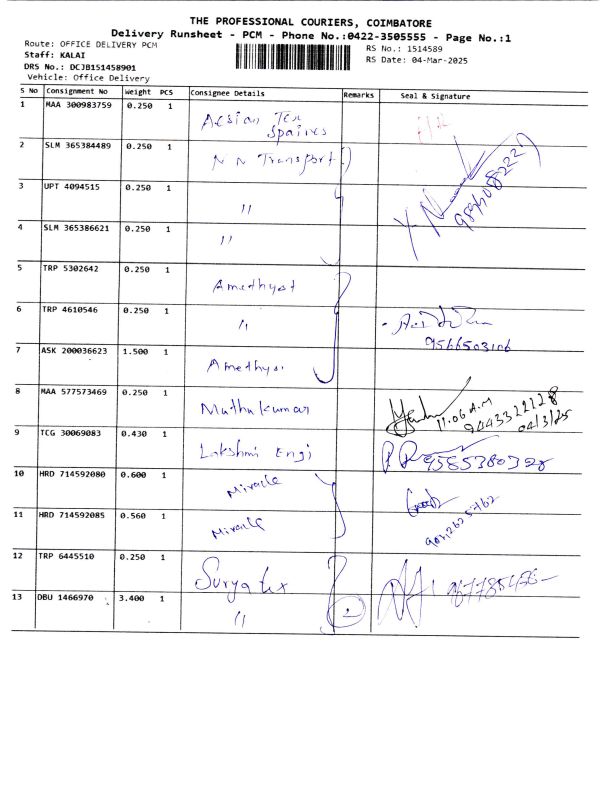 THE PROFESSIONAL COURIERS, COIMBATORE
Delivery Runsheet - PCM - Phone No.:0422-3505555 - Page No.:1
Route: OFFICE DELIVERY PCM
RS No.: 1514589
Staff: KALAI
RS Date: 04-Mar-2025
DRS No.: DCJB151458901
Vehicle: Office Delivery
S No Consignment No Weight PCS Consignee Details Remarks Seal & Signature
1 MAA 300983759 0.250 1
Spaires
2 SLM 365384489 0.250 1 N N Transport
3 UPT 4094515 0.250 1 "
4 SLM 365386621 0.250 1 "
5 TRP 5302642 0.250 1 Amethyst
6 TRP 4610546 0.250 1 "
9566503106
7 ASK 200036623 1.500 1 Amethyst
8 MAA 577573469 0.250 1 Muthukumar 11.06 A.M
9043322128
04/3/25
9 TCG 30069083 0.430 1 Lakshmi Engi 9585380328
10 HRD 714592080 0.600 1 Miracle
11 HRD 714592085 0.560 1 Miracle
12 TRP 6445510 0.250 1 Surya tex
13 DBU 1466970 3.400 1 " 2